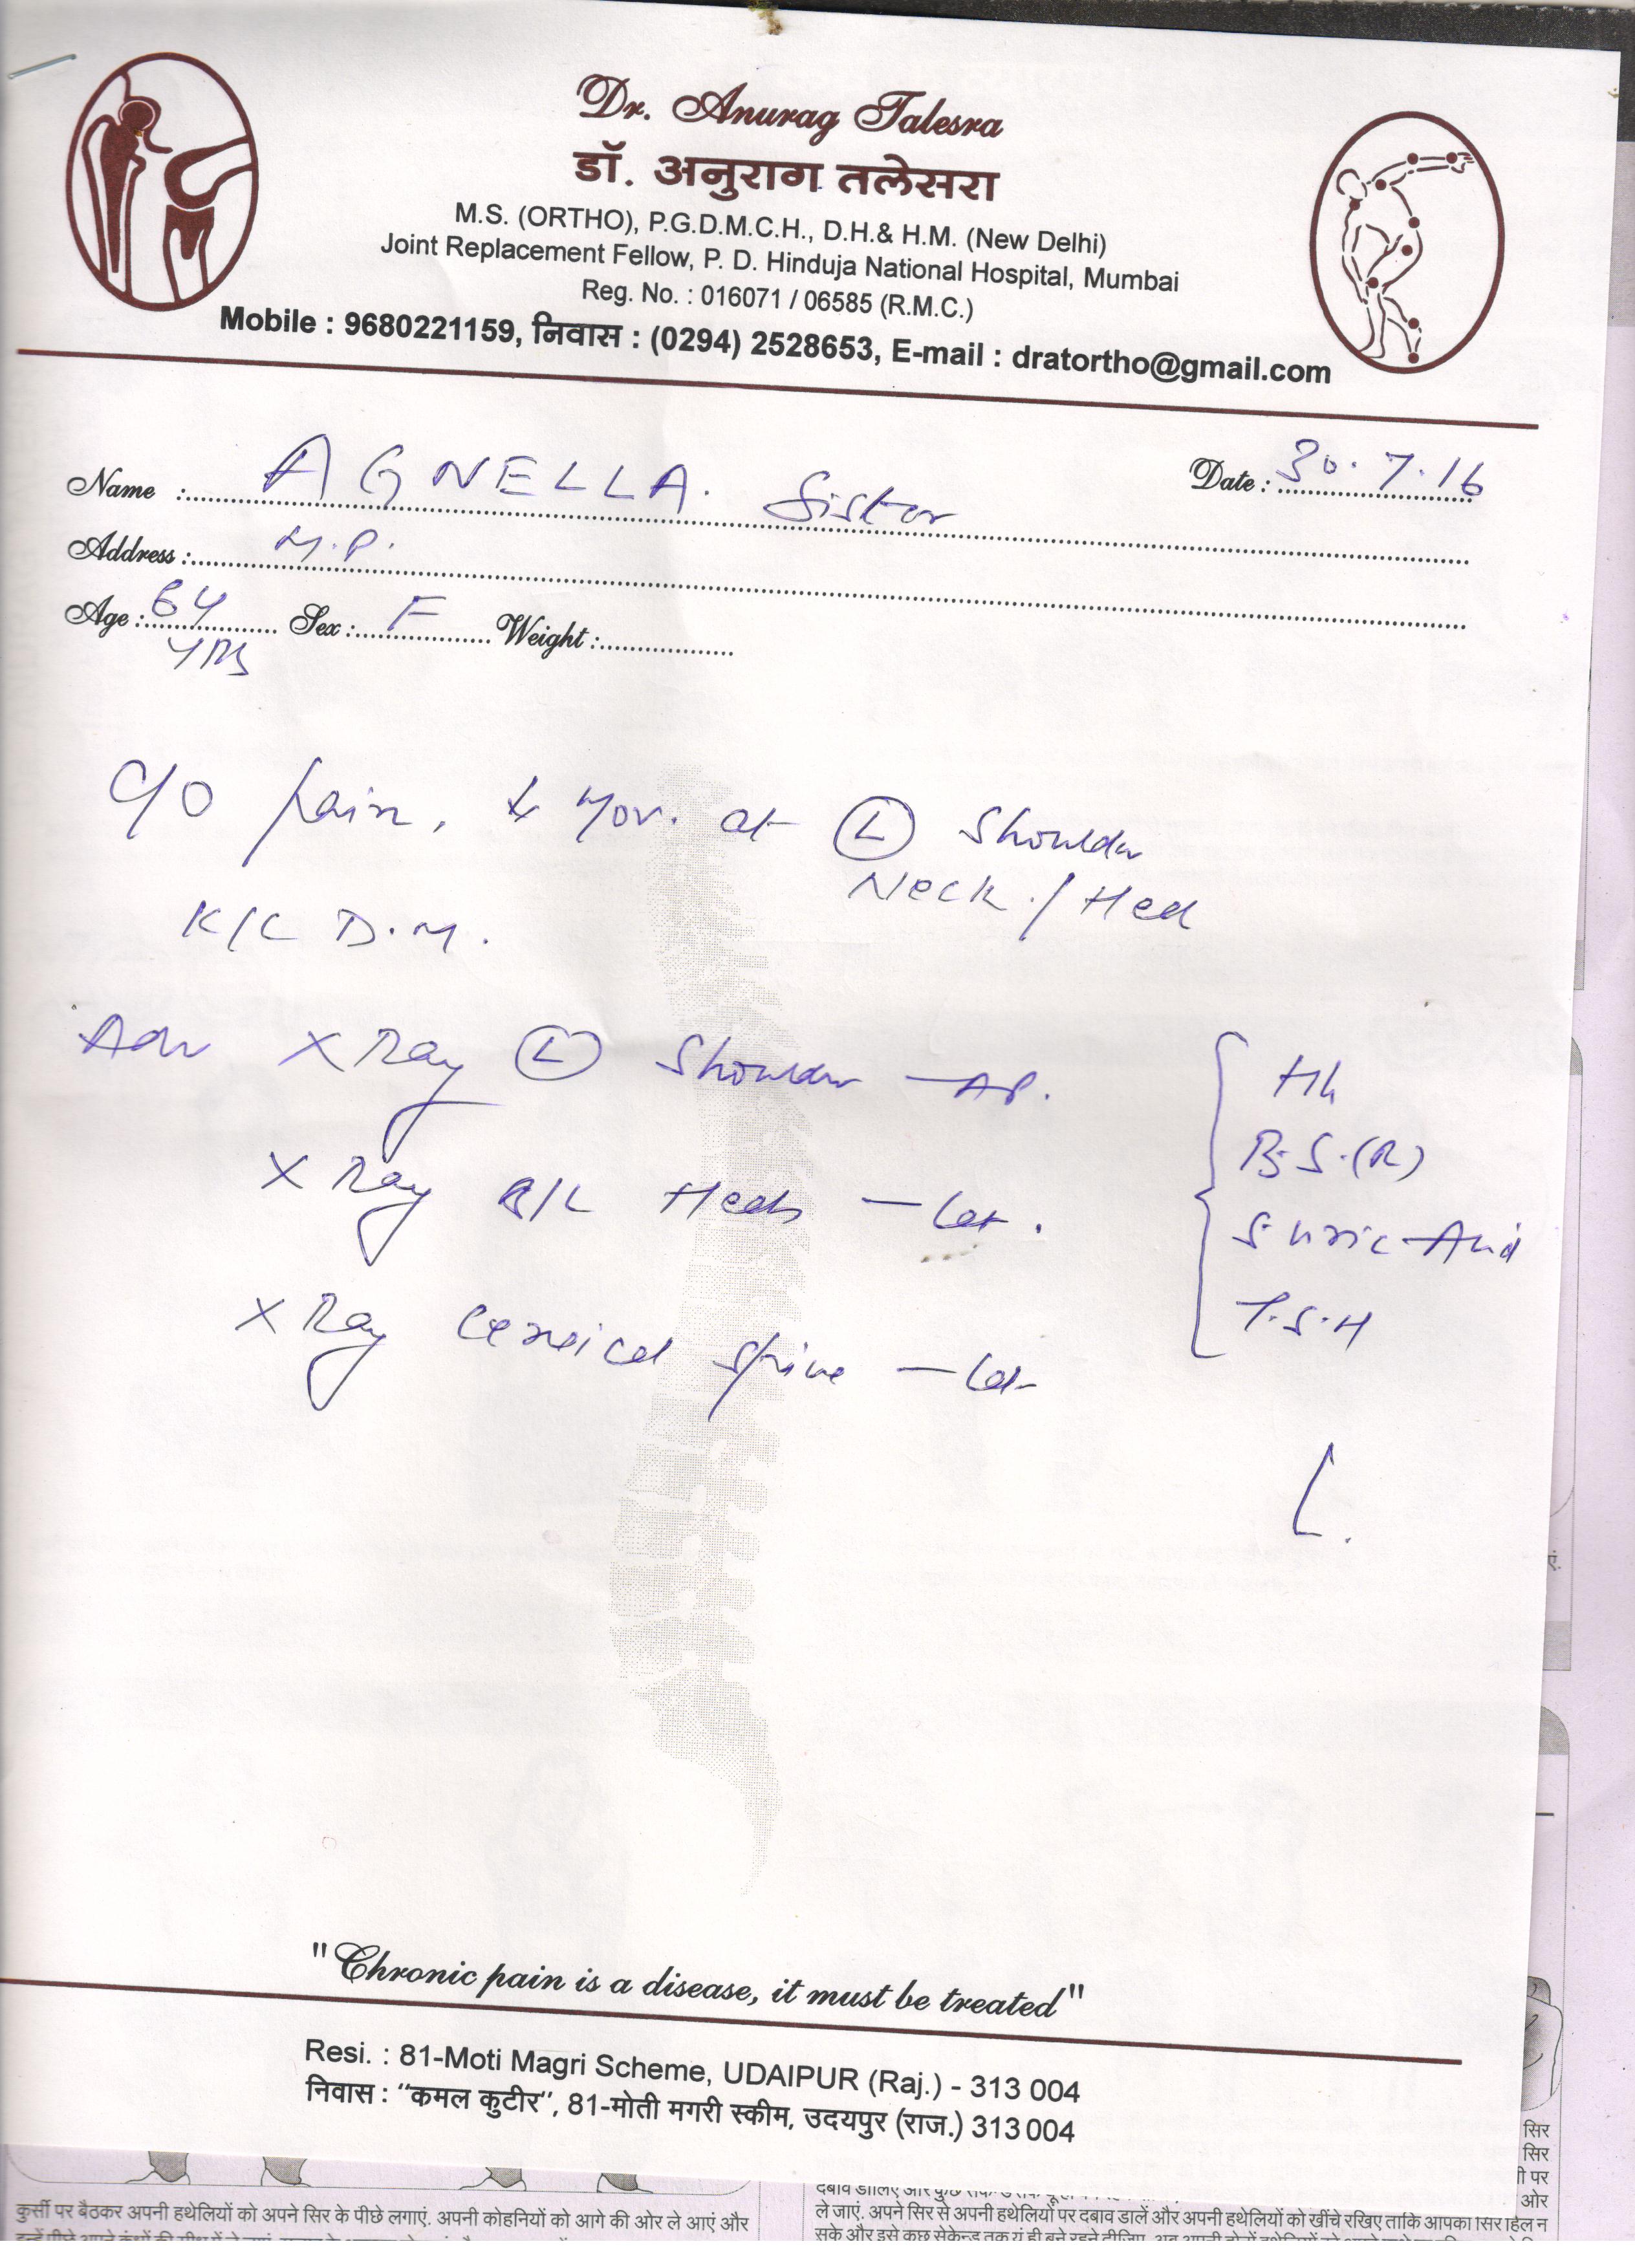 Dr. Anurag Talesra
डॉ. अनुराग तलेसरा
M.S. (ORTHO), P.G.D.M.C.H., D.H.& H.M. (New Delhi)
Joint Replacement Fellow, P. D. Hinduja National Hospital, Mumbai
Reg. No. : 016071 / 06585 (R.M.C.)
Mobile : 9680221159, निवास : (0294) 2528653, E-mail : dratortho@gmail.com
Name : AGNELLA. Sister Date : 30.7.16
Address : M.P.
Age : 64 Sex : F Weight :
YRS
C/O Pain, ↓ Mov. at (L) Shoulder
Neck / Heel
K/C D.M.
Adv X Ray (L) Shoulder - AP.
X Ray B/L Heels - Lat.
X Ray Cervical Spine - Lat
Hb
B.S.(R)
S. Uric Acid
T.S.H
"Chronic pain is a disease, it must be treated"
Resi. : 81-Moti Magri Scheme, UDAIPUR (Raj.) - 313 004
निवास : “कमल कुटीर”, 81-मोती मगरी स्कीम, उदयपुर (राज.) 313 004
सिर
सिर
पर
ओर
कुर्सी पर बैठकर अपनी हथेलियों को अपने सिर के पीछे लगाएं. अपनी कोहनियों को आगे की ओर ले आएं और
ले जाएं. अपने सिर से अपनी हथेलियों पर दबाव डालें और अपनी हथेलियों को खींचे रखिए ताकि आपका सिर हिल न